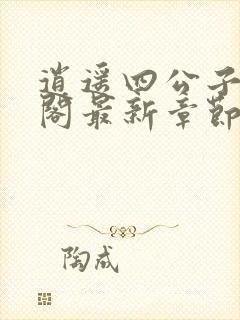 逍遥四公子
阁最新章节
陶成